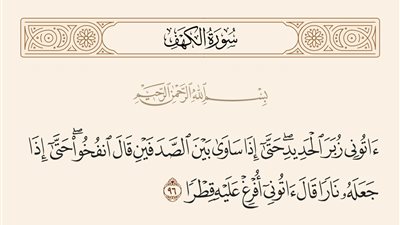 سُورَةُ الكَهۡفِ
بِسۡمِ ٱللَّهِ ٱلرَّحۡمَٰنِ ٱلرَّحِيمِ
ءَاتُونِي زُبَرَ ٱلۡحَدِيدِۖ حَتَّىٰٓ إِذَا سَاوَىٰ بَيۡنَ ٱلصَّدَفَيۡنِ قَالَ ٱنفُخُواْۖ حَتَّىٰٓ إِذَا
جَعَلَهُۥ نَارٗا قَالَ ءَاتُونِيٓ أُفۡرِغۡ عَلَيۡهِ قِطۡرٗا ٩٦